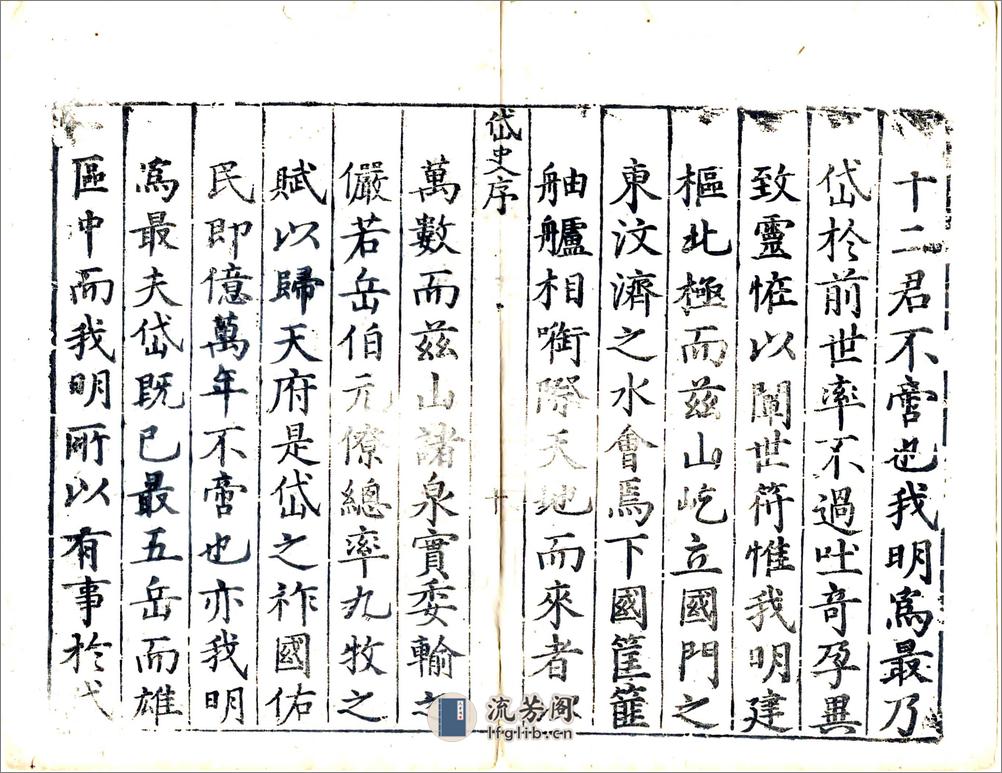 十二君不啻也我明爲最乃
岱於前世率不過吐奇孕異
致靈恠以闡世符惟我明建
樞北極而茲山屹立國門之
東汶濟之水會焉下國筐篚
舳艫相啣際天地而來者以
岱史序
十
萬數而茲山諸泉實委輸之
儼若岳伯元僚總率九牧之
賦以歸天府是岱之祚國佑
民即億萬年不啻也亦我明
爲最夫岱旣已最五岳而雄
區中而我明所以有事於岱
流芳阁
lfglib.cn